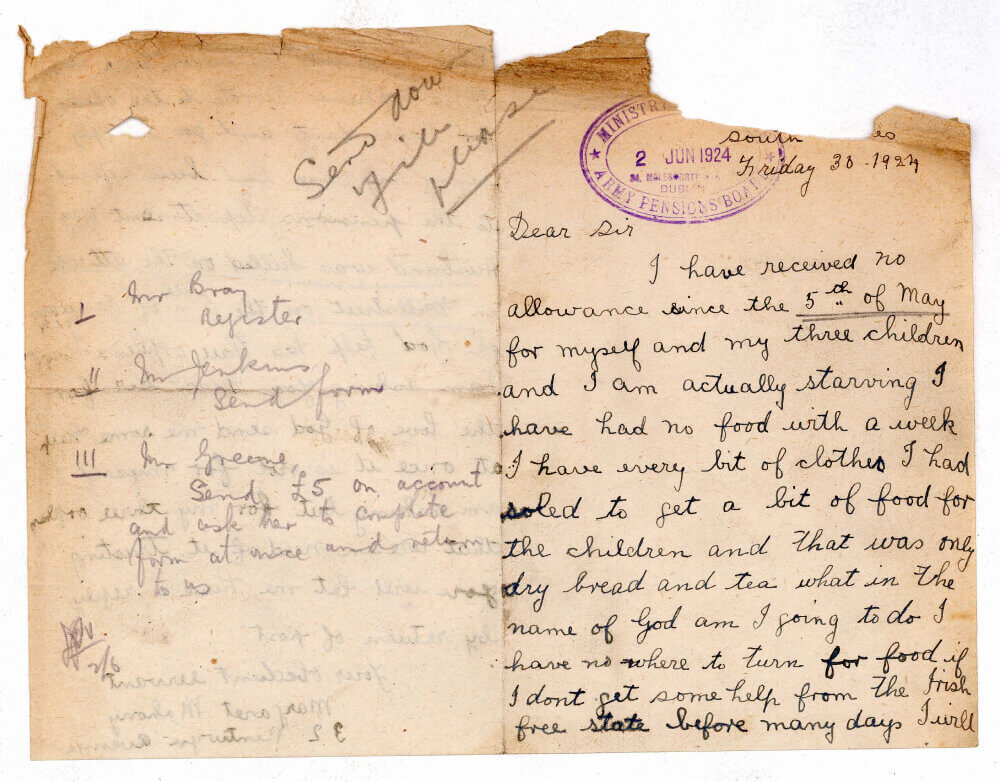 Send down
file
please
I Mr Bray
Register
II Mr Jenkins
Send form
III Mr Greene
Send £5 on account
and ask her to complete
form at once and return
2/6
MINISTRY
2 JUN 1924
34. MOLESWORTH
DUBLIN
ARMY PENSIONS BOARD
South es
Friday 30.1924
Dear Sir
I have received no
allowance since the 5th of May
for myself and my three children
and I am actually starving I
have had no food with a week
I have every bit of clothes I had
soled to get a bit of food for
the children and that was only
dry bread and tea what in the
name of God am I going to do I
have no where to turn for food if
I dont get some help from the Irish
free state before many days I will